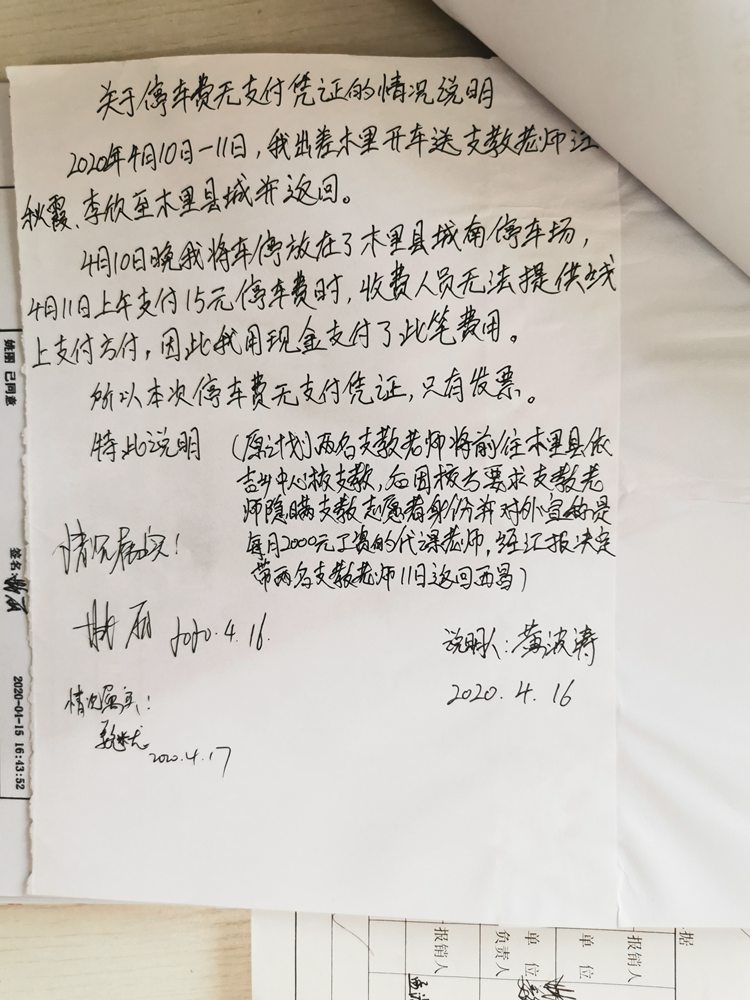 关于停车费无支付凭证的情况说明
2020年4月10日-11日，我出差木里开车送支教老师汪
秋霞、李欣至木里县城并返回。
4月10日晚我将车停放在了木里县城南停车场，
4月11日上午支付15元停车费时，收费人员无法提供线
上支付方付，因此我用现金支付了此笔费用。
所以本次停车费无支付凭证，只有发票。
特此说明
（原计划两名支教老师将前往木里县依
吉乡中心校支教，后因校方要求支教老
师隐瞒支教志愿者身份并对外宣称是
每月2000元工资的代课老师，经汇报决定
带两名支教老师11日返回西昌）
情况属实！
姚丽 2020.4.16.
说明人：黄波涛
2020.4.16
情况属实！
2020.4.17
姚丽 已同意
签名：
2020-04-15 16:43:52
据
报销人
单位
单位
负责人
报销人